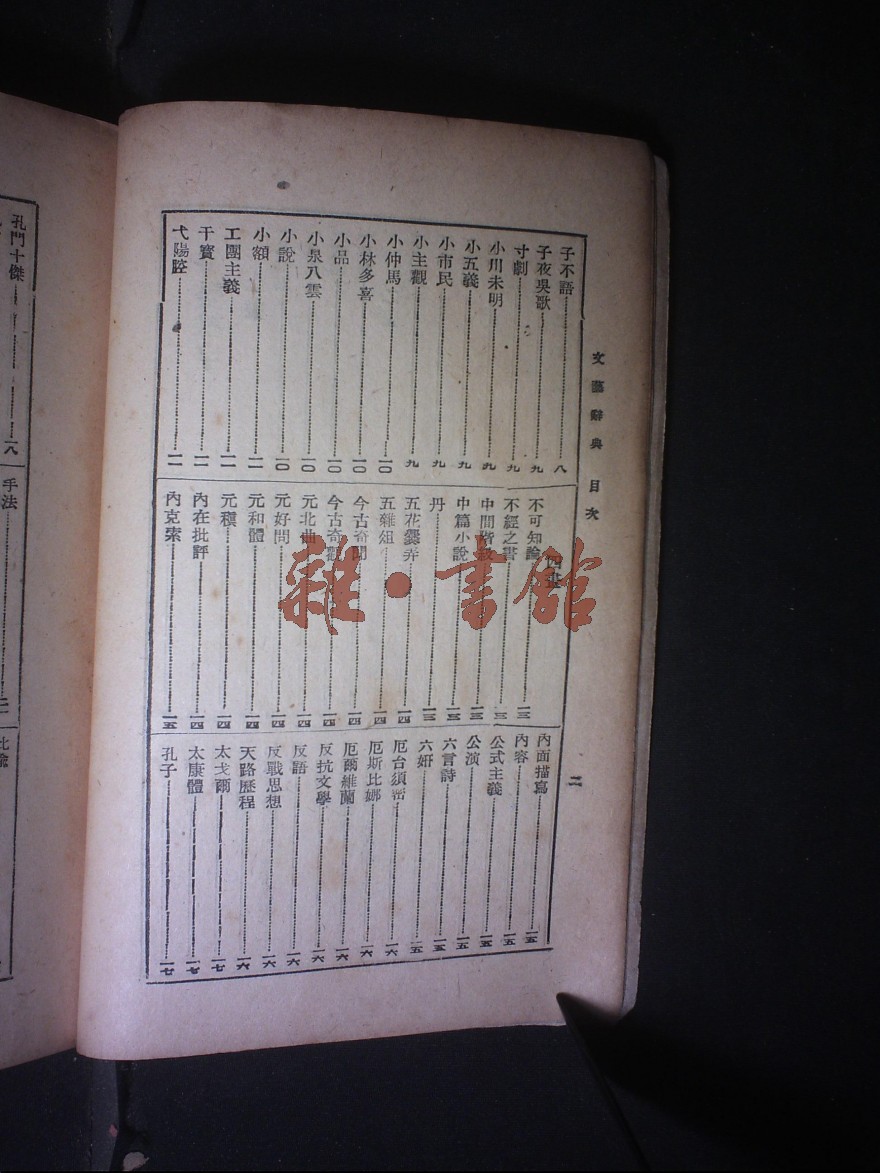 文藝辭典 目次
二
子不語 八
子夜吳歌 九
寸劇 九
小川未明 九
小五義 九
小市民 九
小主觀 九
小仲馬 一〇
小林多喜 一〇
小品 一〇
小泉八雲 一〇
小說 一〇
小額 一一
工團主義 一一
干寶 一一
弋陽腔 一一
四畫
不可知論 一三
不經之書 一三
中間階級 一三
中篇小說 一三
丹 一三
五花爨弄 一四
五雜俎 一四
今古奇聞 一四
今古奇觀 一四
元北曲 一四
元好問 一四
元和體 一四
元稹 一四
內在批評 一四
內克索 一五
內面描寫 一五
內容 一五
公式主義 一五
公演 一五
六言詩 一五
六姸 一五
厄台須密 一六
厄斯比娜 一六
厄爾維蘭 一六
反抗文學 一六
反語 一六
反戰思想 一六
天路歷程 一六
太戈爾 一七
太康體 一七
孔子 一七
孔門十傑 一八
手法
雜·書館